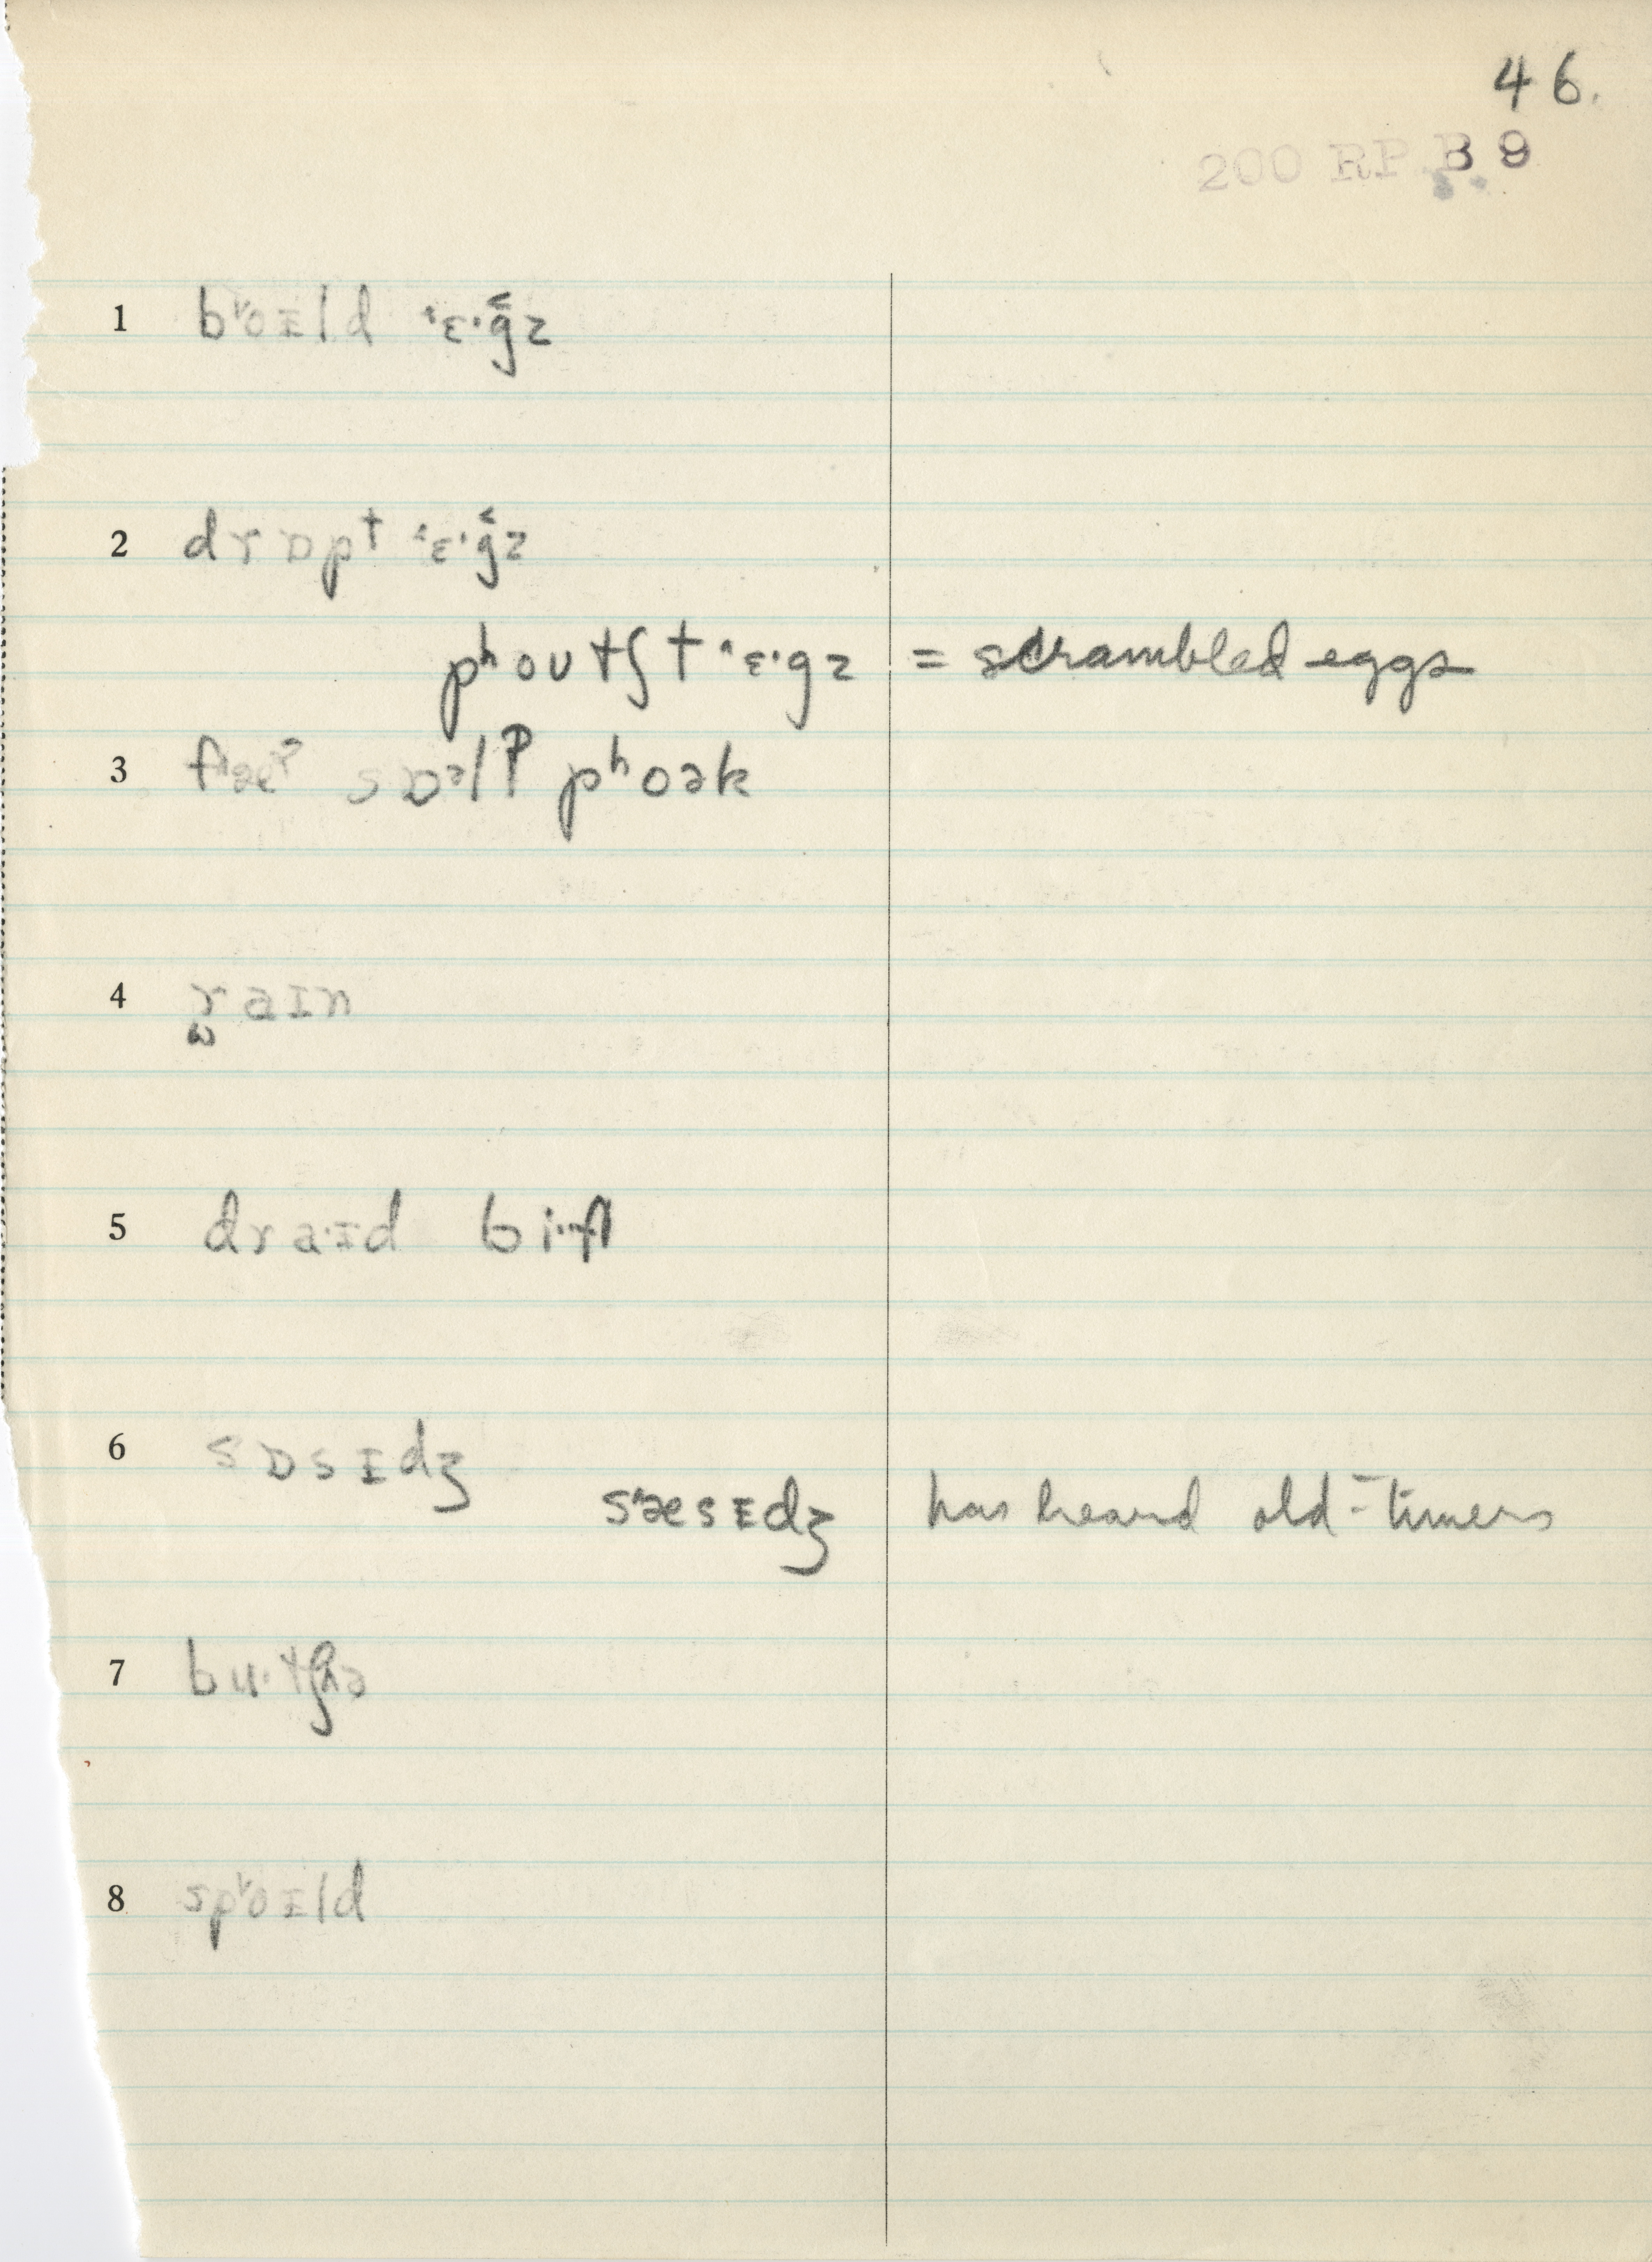 46.
200 RP B 9
1 bɔɪld ˈɛˑǧz
2 drɒpt ˈɛˑǧz
pʰoʊtʃt ˈɛˑgz = scrambled eggs
3 sɒᵊlˀ pʰoək
4 raɪn
5 draˑɪd biˑf
6 sɒsɪdʒ
sæsɪdʒ has heard old-timers
7
8 spɔɪld